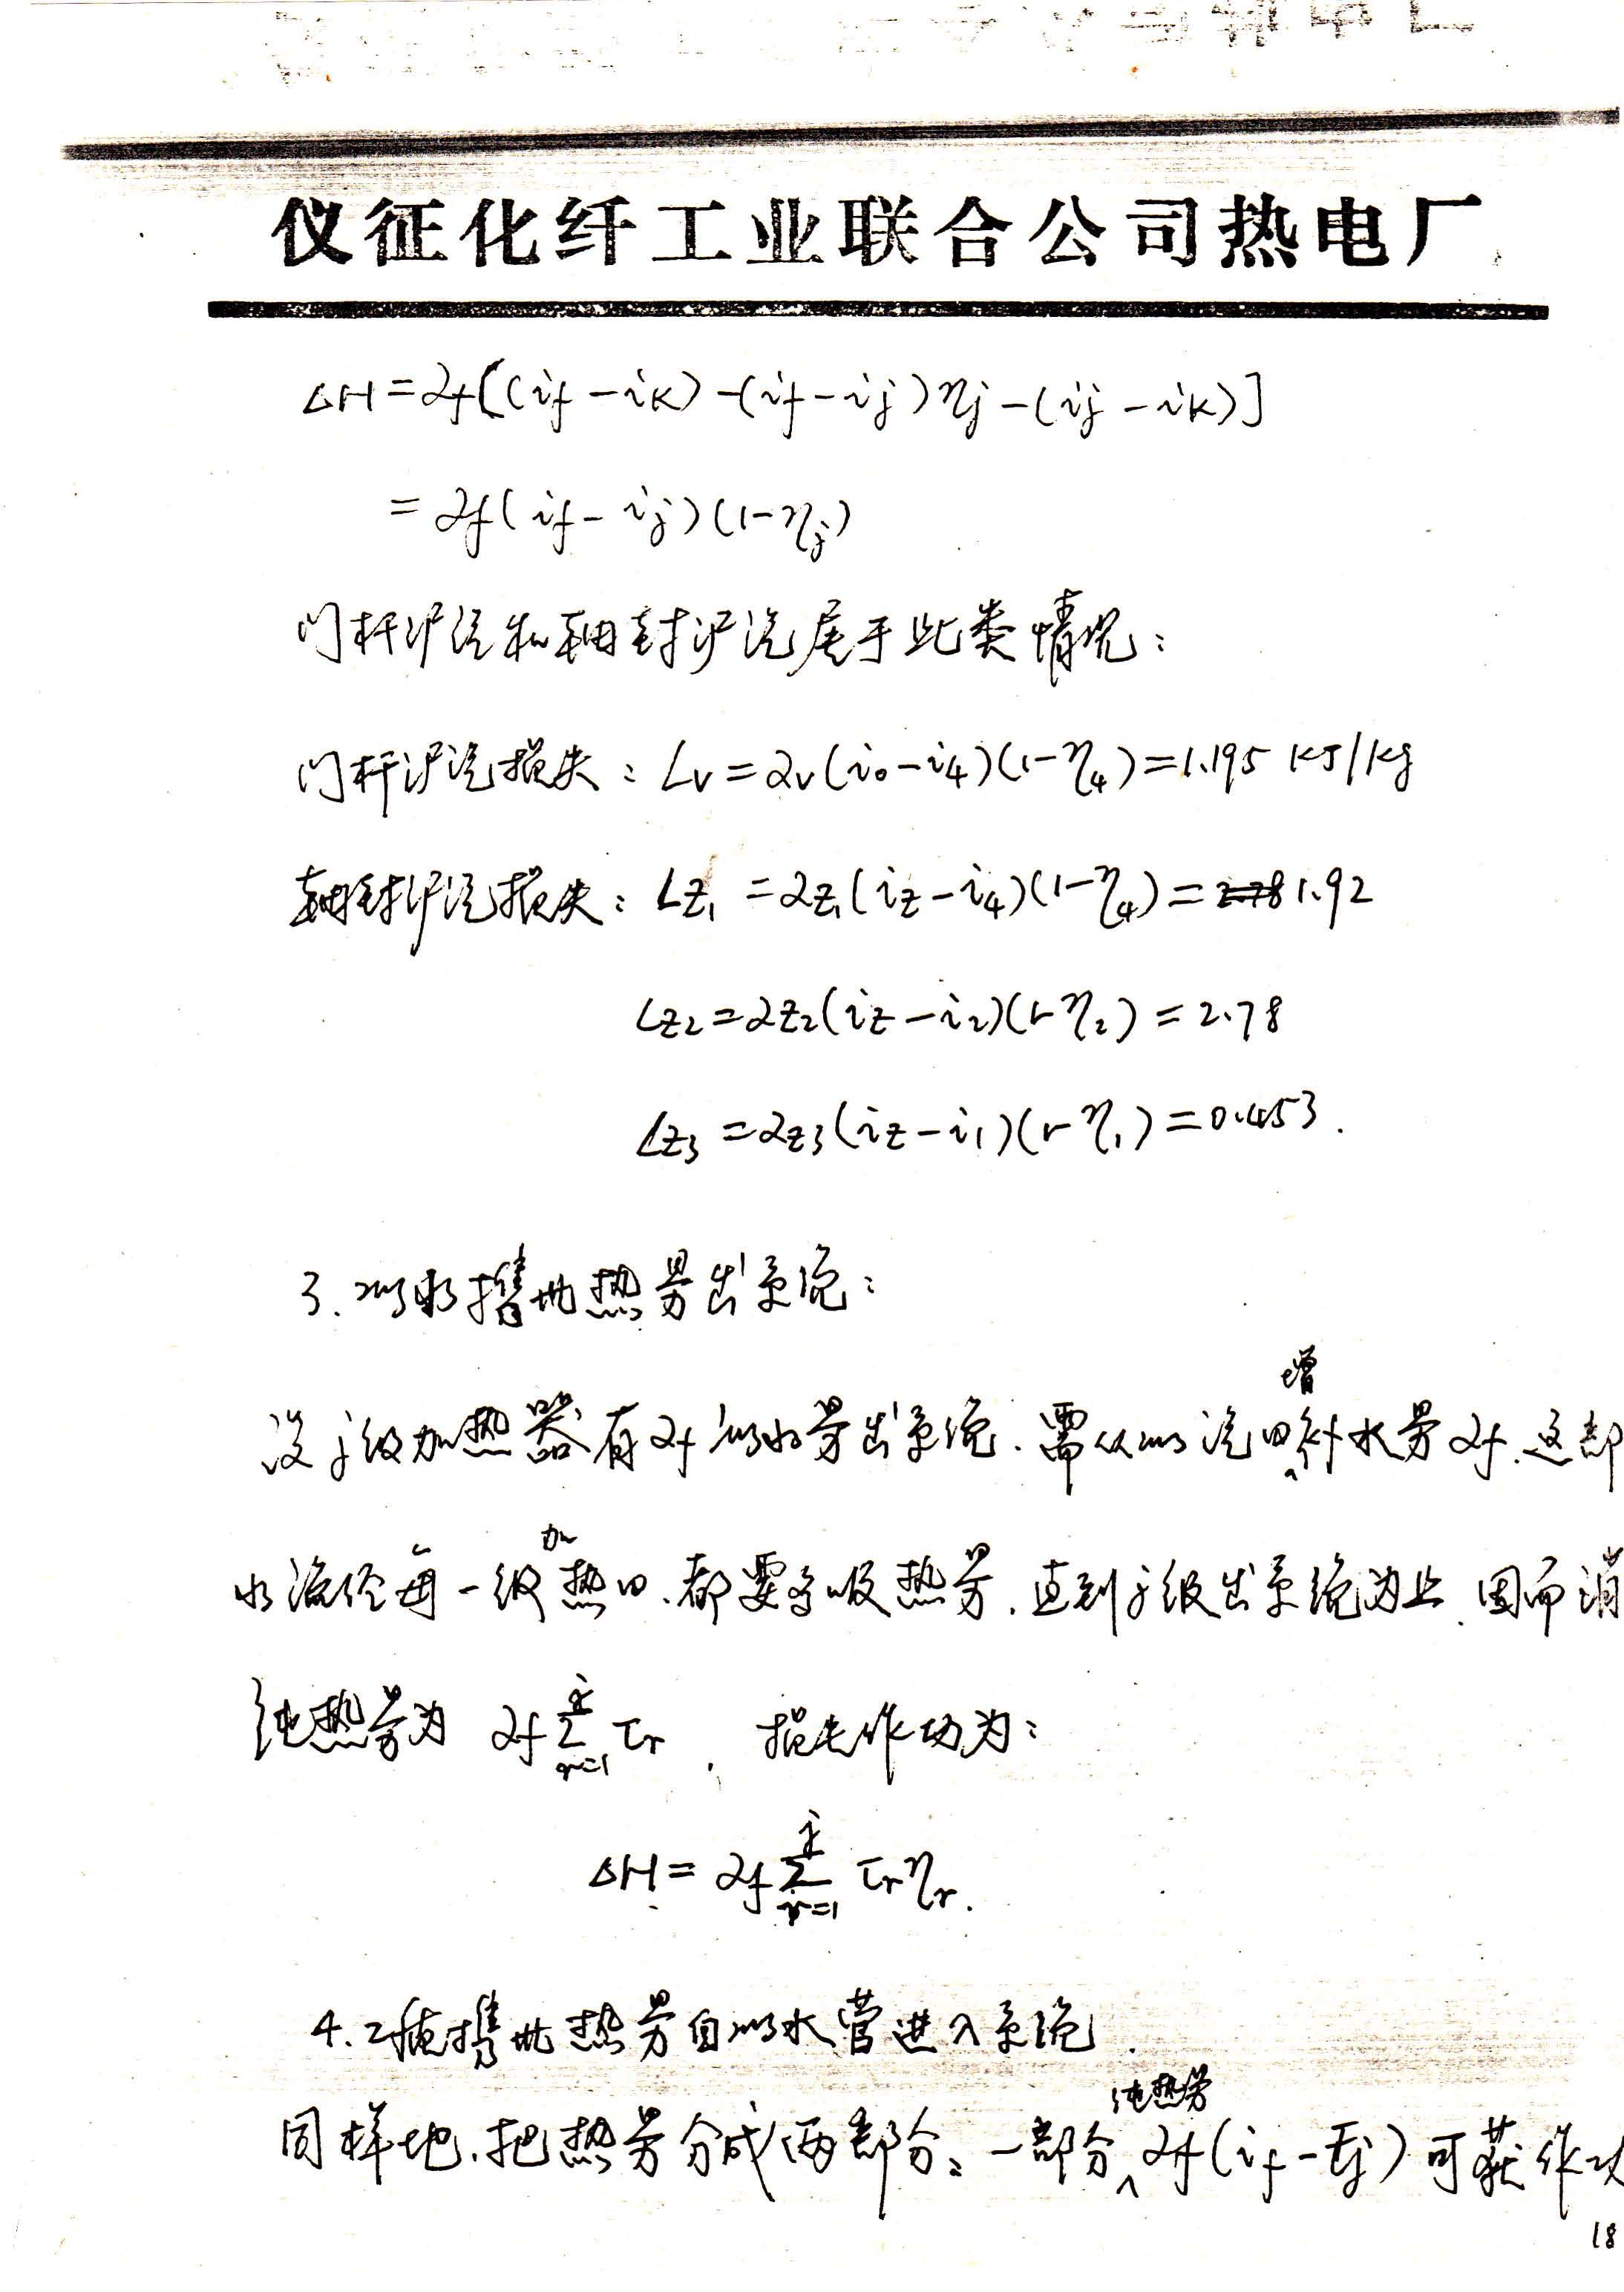 仪征化纤工业联合公司热电厂
ΔH = αf[(if - ik) - (if - ij)ηj - (ij - ik)]
= αf(if - ij)(1-ηj)
门杆泸汽和轴封泸汽属于此类情况：
门杆泸汽损失：Lv = αv(i0-i4)(1-η4) = 1.195 KJ/Kg
轴封泸汽损失：Lz1 = αz1(iz-i4)(1-η4) = 1.92
Lz2 = αz2(iz-i2)(1-η2) = 2.78
Lz3 = αz3(iz-i1)(1-η1) = 0.453.
3. 携带热量出系统：
设j级加热器有αf 出系统.需从 汽 增补水量αf.这部
水流经每一级加热 .都要 吸热量.直到j级出系统为止.因而消
纯热量为 αf Σ(r=1→j) τr . 损失作功为：
ΔH = αf Σ(r=1→j) τrηr.
4. 携带热量自 水管进入系统.
同样地.把热量分成两部分：一部分纯热量αf(if - t̄j)可获作功
18